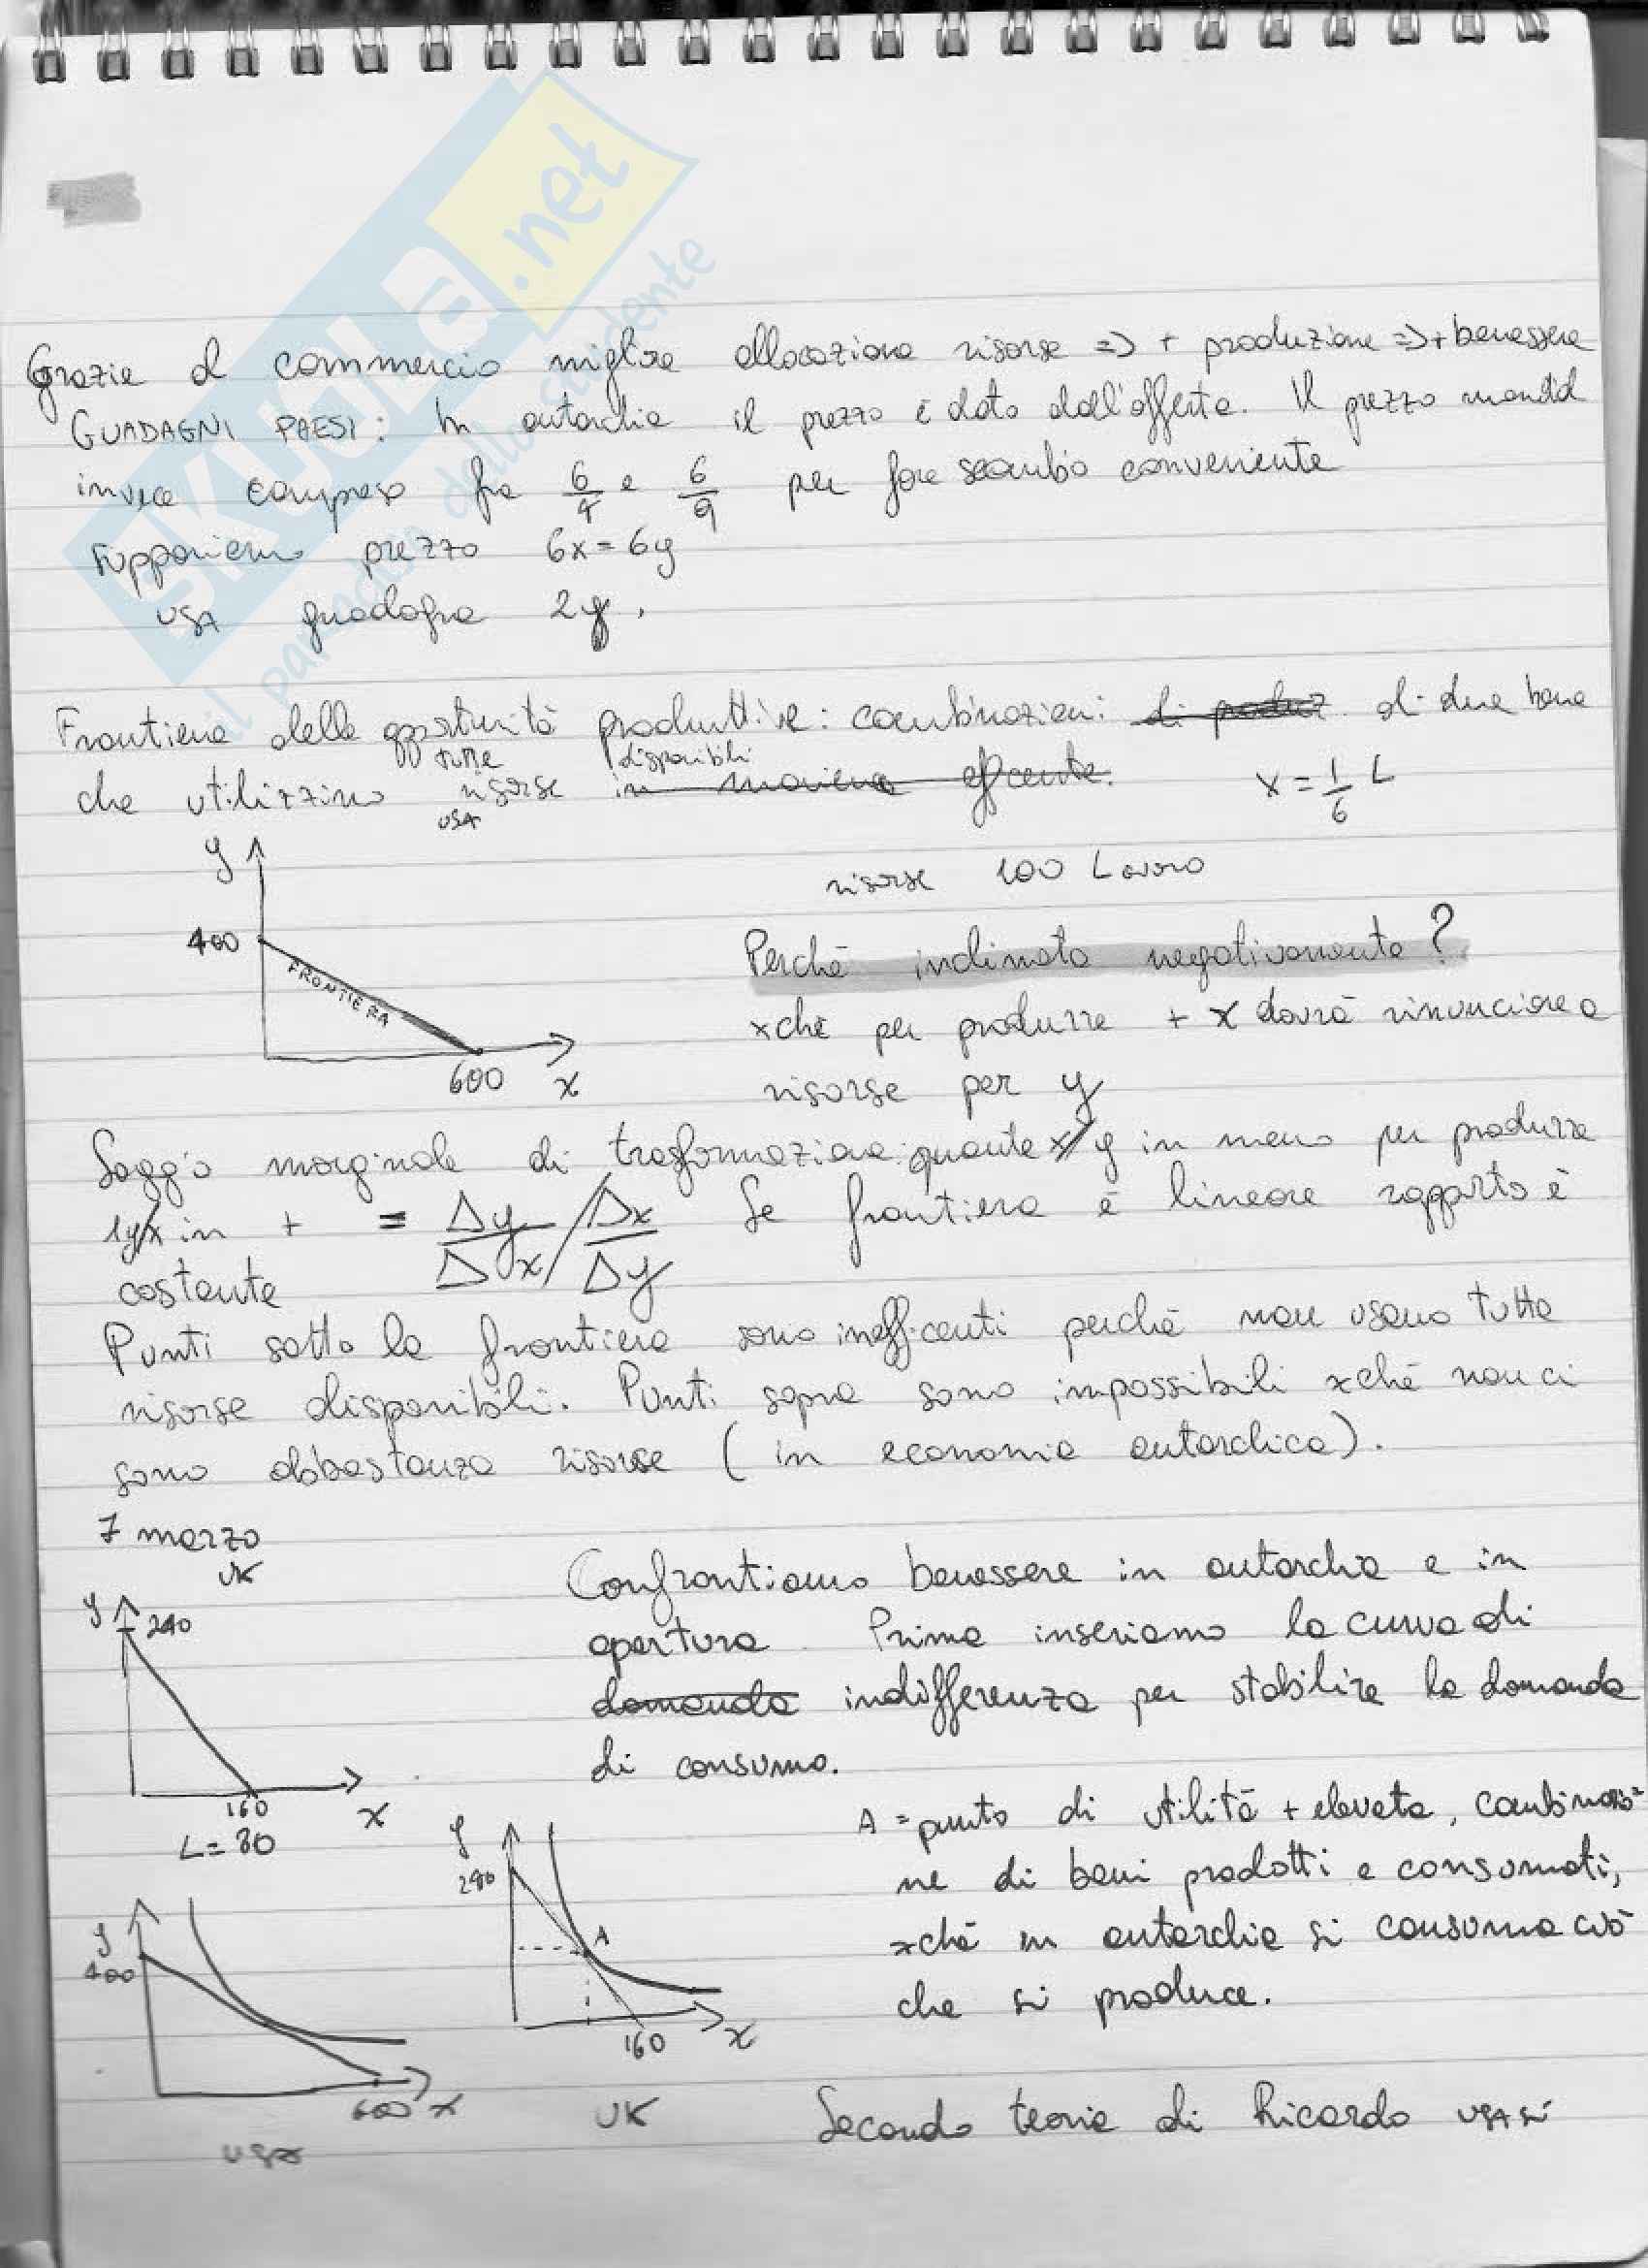 SKUOLA.net
il paradiso dello studente
Grazie al commercio migliore allocazione risorse => + produzione => + benessere
GUADAGNI PAESI: In autarchia il prezzo è dato dall'offerta. Il prezzo mondial
invece compreso fra 6/4 e 6/9 per fare scambio conveniente
supponiamo prezzo 6x=6y
USA guadagna 2y.
Frontiera delle opportunità produttive: combinazioni di produz di due bene
che utilizzino tutte risorse disponibili in maniera efficente. x = 1/6 L
USA
y
risorse 100 Lavoro
400
FRONTIERA
600 x
Perché inclinata negativamente?
xché per produrre + x dovrà rinunciare a
risorse per y
Saggio marginale di trasformazione: quante x/y in meno per produrre
1y/x in + = Δy/Δx / Δx/Δy Se frontiera è lineare rapporto è
costante
Punti sotto la frontiera sono inefficenti perché non usano tutte
risorse disponibili. Punti sopra sono impossibili xché non ci
sono abbastanza risorse (in economia autarchica).
7 marzo
UK
y
240
160 x
L=80
Confrontiamo benessere in autarchia e in
apertura. Prima inseriamo la curva di
domanda indifferenza per stabilire la domanda
di consumo.
y
240
A
160 x
UK
A = punto di utilità + elevata, combinazio=
ne di beni prodotti e consumati,
xché in autarchia si consuma ciò
che si produce.
y
400
600 x
USA
Secondo teoria di Ricardo USA si